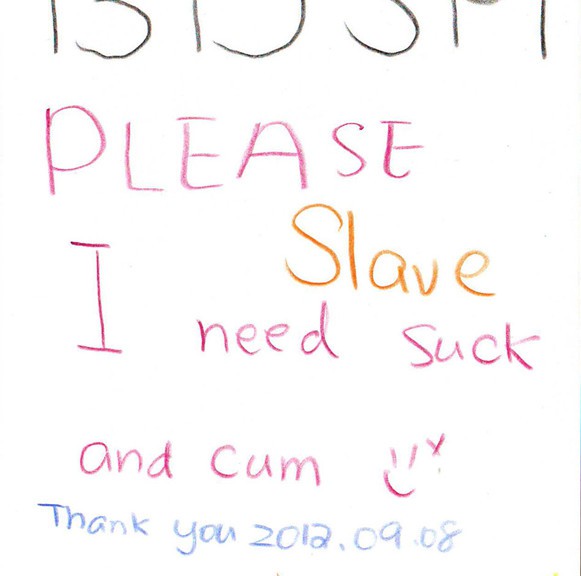 BDSM
PLEASE
Slave
I need suck
and cum
Thank you 2012.09.08